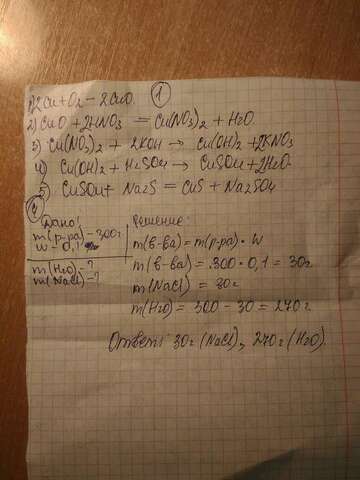 1
1) 2Cu + O2 – 2CuO.
2) CuO + 2HNO3 = Cu(NO3)2 + H2O.
3) Cu(NO3)2 + 2KOH → Cu(OH)2 + 2KNO3
4) Cu(OH)2 + H2SO4 → CuSO4 + 2H2O.
5) CuSO4 + Na2S = CuS + Na2SO4
2
Дано:
m(р-ра) – 300г
w – 0,1
m(H2O) – ?
m(NaCl) – ?
Решение:
m(в-ва) = m(р-ра) · w
m(в-ва) = 300 · 0,1 = 30г
m(NaCl) = 30г
m(H2O) = 300 – 30 = 270г
Ответ: 30г (NaCl), 270г (H2O).